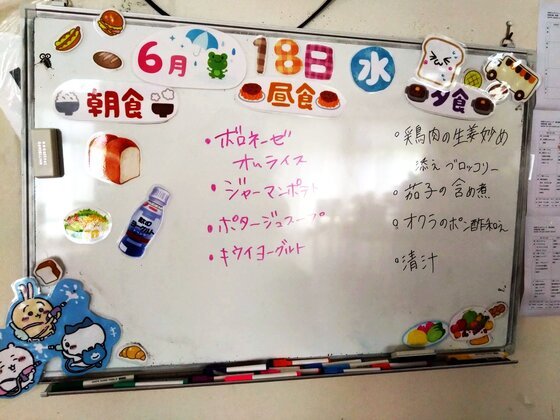 6月 18日 水
朝食
昼食
夕食
・ボロネーゼ
オムライス
・ジャーマンポテト
・ポタージュスープ
・キウイヨーグルト
・鶏肉の生姜炒め
添えブロッコリー
・茄子の含め煮
・オクラのポン酢和え
・清汁